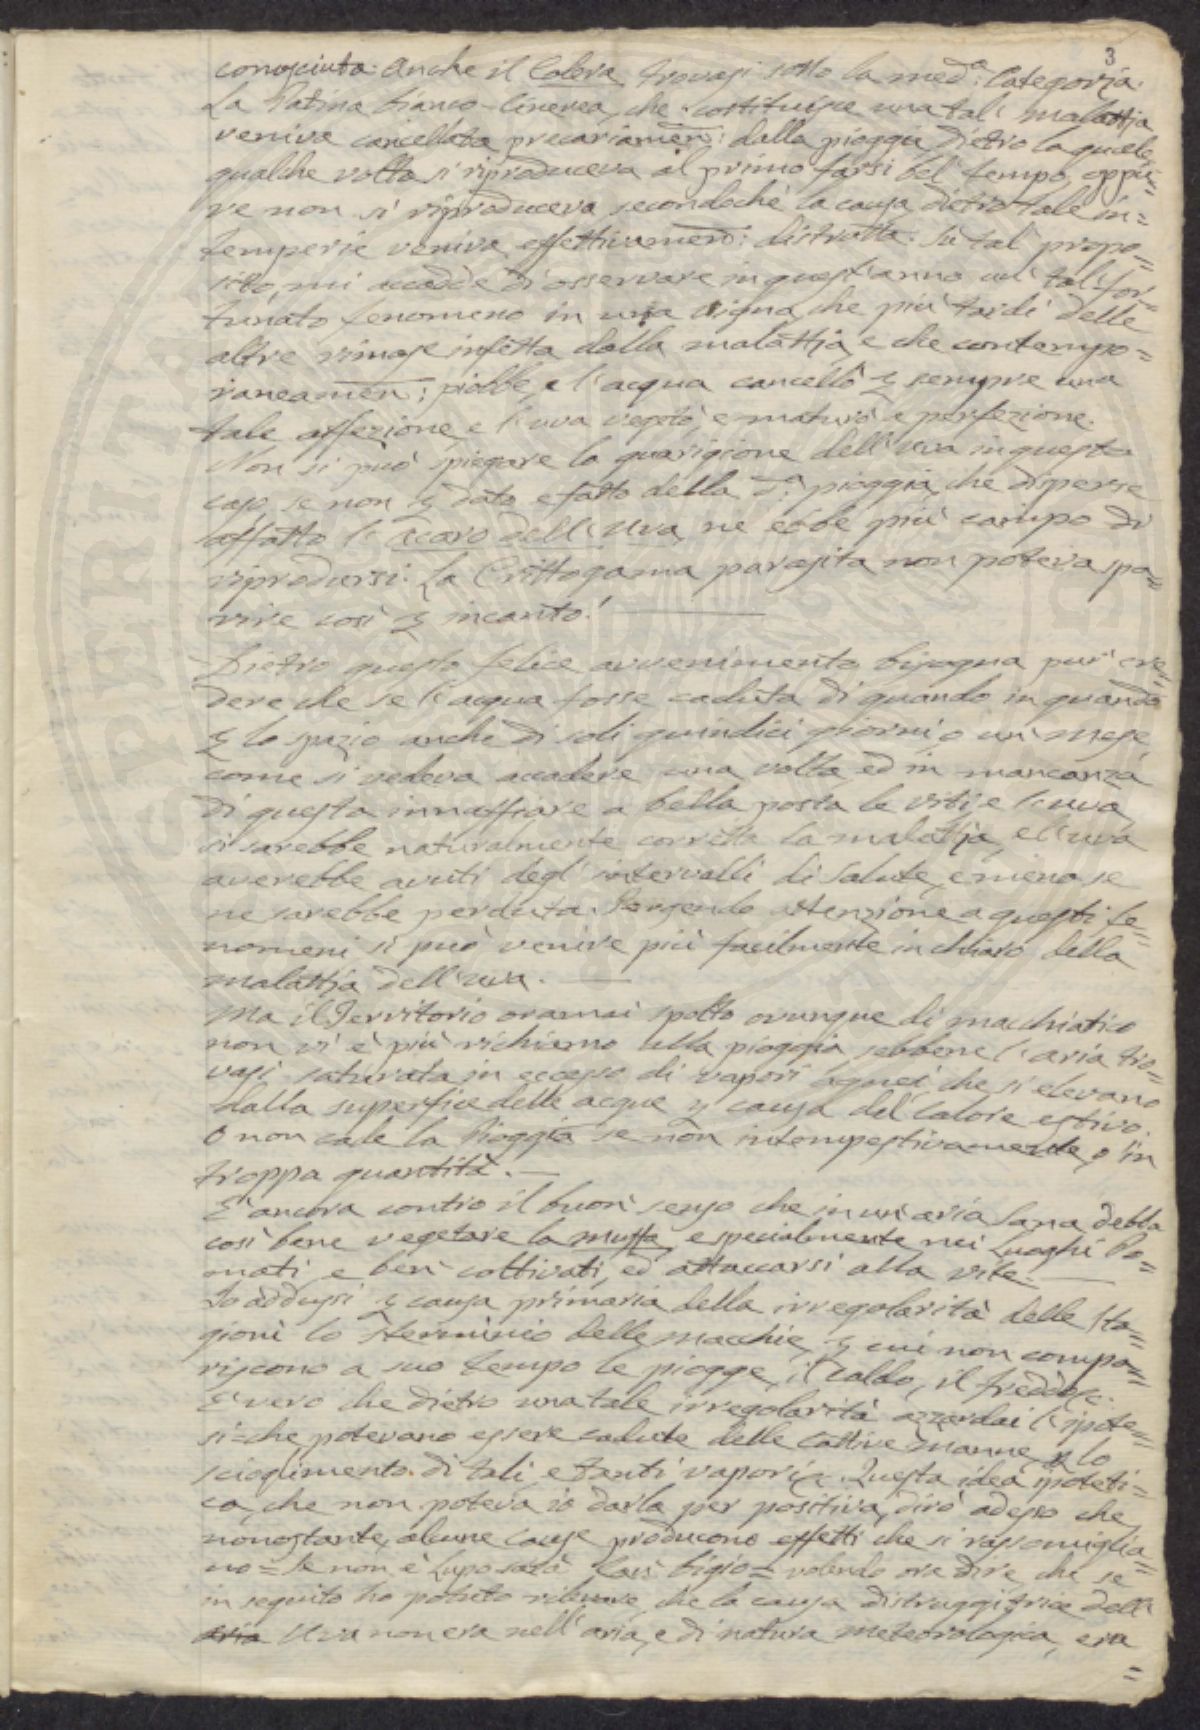 3
conosciuta. Anche il Colera trovasi sotto la med.a Categoria.
La Patina bianco-Cinerea, che costituisce una tal' malattia
veniva cancellata precariamen: dalla pioggia, dietro la quale
qualche volta si riproduceva al primo farsi bel tempo, oppu=
re non si riproduceva secondochè la causa dietro tale in=
temperie veniva effettivamen: distrutta. Su tal' propo=
sito, mi accadde di osservare in quest'anno un' tal' for=
tunato fenomeno in una vigna che più tardi delle
altre rimase infetta dalla malattia, e che contempo=
raneamen: piobbe, e l'acqua cancellò p sempre una
tale affezione, e l'uva vegetò, e maturò a perfezione.
Non si può spiegare la guarigione dell'uva in questo
caso, se non p dato e fatto della d.a pioggia, che disperse
affatto l'acaro dell'Uva, ne ebbe più campo di
riprodursi. La Crittogama parasita non poteva spa=
rire così p incanto!
Dietro questo felice avvenimento bisogna pur' cre=
dere che se l'acqua fosse caduta di quando in quando
p lo spazio anche di soli quindici giorni o un' mese,
come si vedeva accadere una volta, ed in mancanza
di questa innaffiare a bella posta le viti e l'uva,
si sarebbe naturalmente corretta la malattia, e l'uva
averebbe avuti degl'intervalli di Salute, e meno se
ne sarebbe perduta. Porgendo attenzione a questi fe=
nomeni si può venire più facilmente in chiaro della
malattia dell'uva.
Ma il Territorio oramai spolto ovunque di macchiatico
non vi è più richiamo alla pioggia, sebbene l'aria tro=
vasi saturata in eccesso di vapori aquei, che si elevano
dalla superficie delle acque p causa del Calore estivo.
O non cade la Pioggia se non intempestivamente, o in
troppa quantità.
E' ancora contro il buon' senso che in un'aria Sana debba
così bene vegetare la muffa, e specialmente nei Luoghi Do=
mati, e ben' coltivati, ed attaccarsi alla vite.
Io addussi p causa primaria della irregolarità delle Sta=
gioni lo Sterminio delle macchie, p cui non compa=
riscono a suo tempo le piogge, il Caldo, il freddo &c.
E' vero che dietro una tale irregolarità azzardai l'ipote=
si = che potevano essere cadute delle Cattive manne, p lo
sciogimento di tali, e tanti vapori &c. Questa idea ipoteti=
ca, che non poteva io darla per positiva, dirò adesso che
nonostante, alcune Cause producono effetti che si rassomiglia=
no = Se non è Lupo sarà Can' bigio = volendo ora dire, che se
in seguito ho potuto rilevare, che la causa distruggitrice dell'
aria Uva non era nell'aria, e di natura meteorologica, era
=